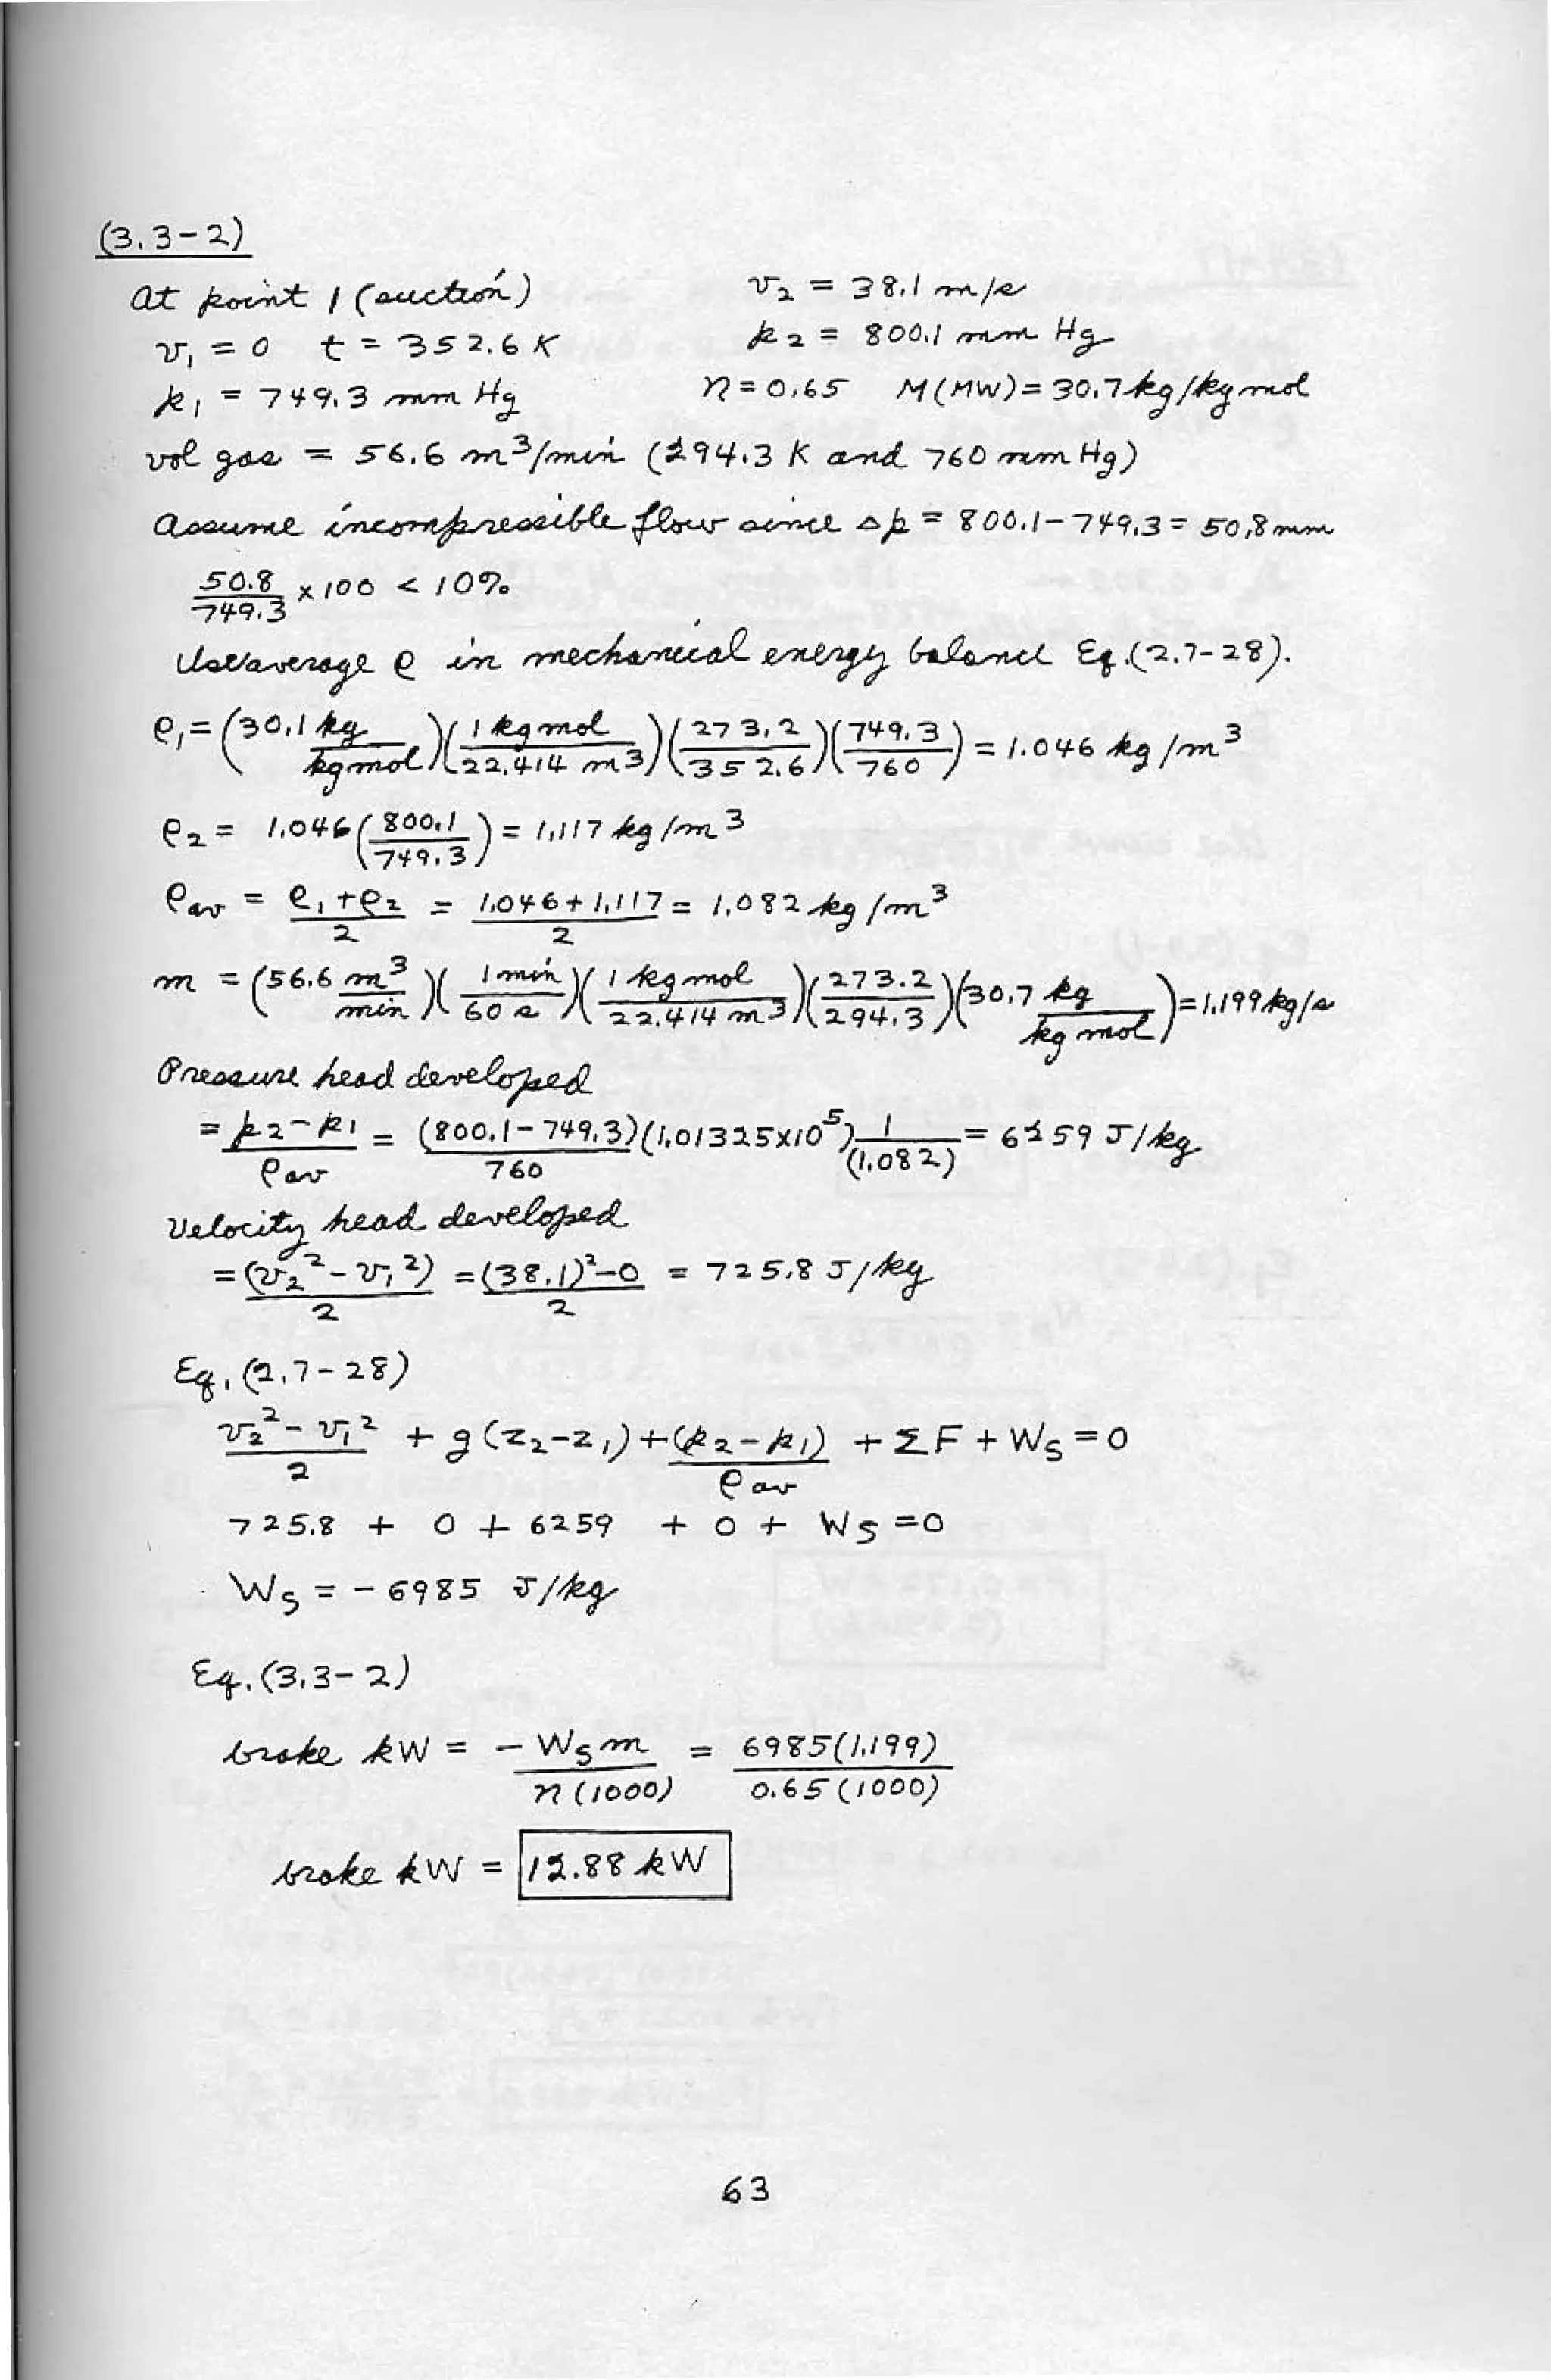 (3.3-2)
At point 1 (suction) v₂ = 38.1 m/s
v₁ = 0 t = 352.6 K p₂ = 800.1 mm Hg
p₁ = 749.3 mm Hg η = 0.65 M(MW) = 30.7 kg/kg mol
vol gas = 56.6 m³/min (294.3 K and 760 mm Hg)
Assume incompressible flow since Δp = 800.1 - 749.3 = 50.8 mm
50.8/749.3 x 100 < 10%
Use average ρ in mechanical energy balance Eq.(2.7-28).
ρ₁ = (30.1 kg/kg mol)(1 kg mol/22.414 m³)(273.2/352.6)(749.3/760) = 1.046 kg/m³
ρ₂ = 1.046(800.1/749.3) = 1.117 kg/m³
ρav = (ρ₁+ρ₂)/2 = (1.046+1.117)/2 = 1.082 kg/m³
m = (56.6 m³/min)(1 min/60 s)(1 kg mol/22.414 m³)(273.2/294.3)(30.7 kg/kg mol) = 1.199 kg/s
Pressure head developed
= (p₂-p₁)/ρav = (800.1-749.3)/760 (1.01325x10⁵) 1/(1.082) = 6259 J/kg
Velocity head developed
= (v₂² - v₁²)/2 = ((38.1)²-0)/2 = 725.8 J/kg
Eq. (2.7-28)
(v₂² - v₁²)/2 + g(z₂-z₁) + (p₂-p₁)/ρav + ΣF + Ws = 0
725.8 + 0 + 6259 + 0 + Ws = 0
Ws = - 6985 J/kg
Eq. (3.3-2)
brake kW = - Ws m/η(1000) = 6985(1.199)/0.65(1000)
brake kW = 12.88 kW
63